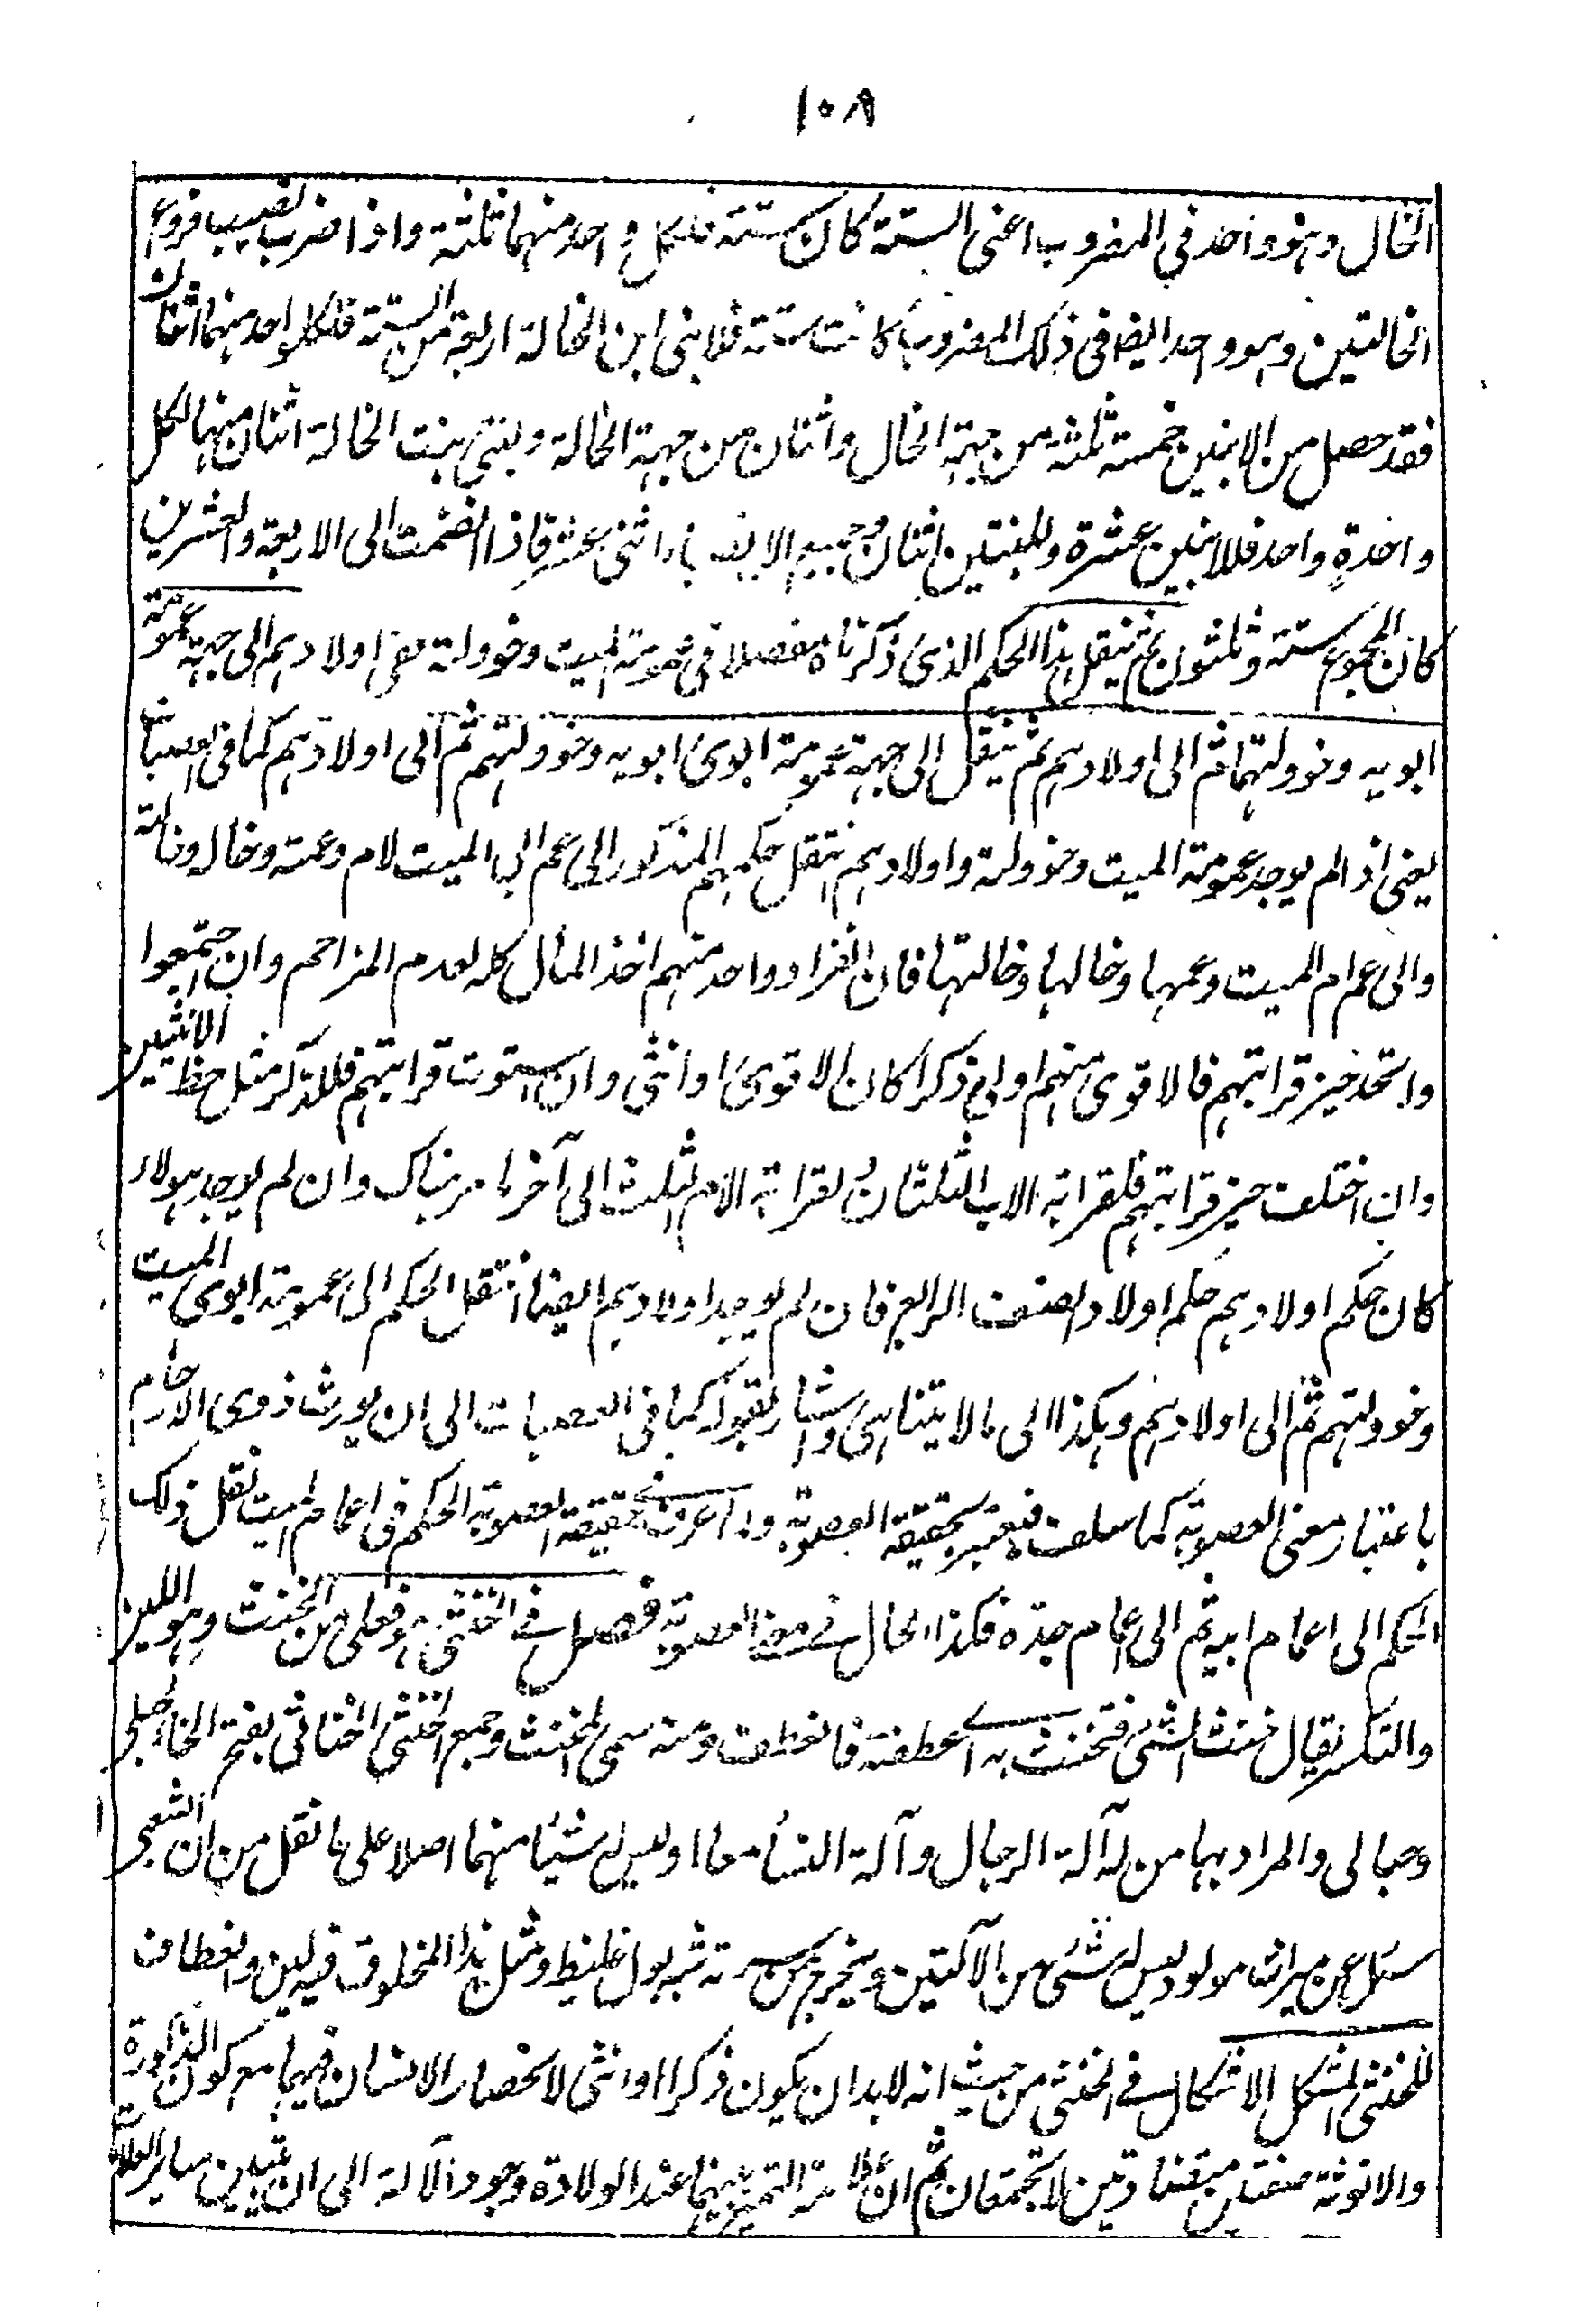 ١٠٨
الخال وهو واحد في المضروب اعنى الستة كان ستة فلكل واحد منهما ثلثة واذا ضرب نصيب فروع
الخالتين وهو واحد ايضا فى ذلك المضروب كانت ستة فلابنى ابن الخالة اربعة من الستة فلكل واحد منهما اثنان
فقد حصل من الابنين خمسة ثلثة من جهة الخال واثنان من جهة الخالة وبنتى بنت الخالة اثنان منها لكل
واحدة واحد فللابنين عشرة وللبنتين اثنان اثنى عشر فاذا انضمت الى الاربعة والعشرين
كان المجموع ستة وثلثون ثم ينتقل هذا الحكم الذى ذكرناه مفصلا فى عمومة الميت وخوولة وفى اولادهم الى جهة عمومة
ابويه وخوولتهما ثم الى اولادهم ثم ينتقل الى جهة عمومة ابوى ابويه وخوولتهم ثم الى اولادهم كما فى العصبات
يعنى اذا لم يوجد عمومة الميت وخوولة واولادهم انتقل حكمهم المذكور الى عم ابي الميت لام وعمة وخال وخالة
والى عم ام الميت وعمها وخالها وخالتها فان انفراد واحد منهم اخذ المال كله لعدم المزاحم وان اجتمعوا
واتحد حيز قرابتهم فالاقوى منهم اولى ذكرا كان الاقوى او انثى وان استوت قرابتهم فللذكر مثل حظ الانثيين
وان اختلف حيز قرابتهم فلقرابة الاب الثلثان ولقرابة الام الثلث الى آخر ما مر هناك وان لم يوجد هولاء
كان حكم اولادهم حكم اولاد الصنف الرابع فان لم يوجد اولادهم ايضا انتقل الحكم الى عمومة ابوى الميت
وخوولتهم ثم الى اولادهم وهكذا الى ما لا يتناهى واشار بقوله كما فى العصبات الى ان يورث ذوى الارحام
باعتبار معنى العصوبة كما سلف فيعتبر بحقيقة العصوبة وما عرفت بحقيقة العصوبة الحكم فى اعمام الميت نقل ذلك
الحكم الى اعمام ابيه ثم الى اعمام جده فكذا الحال في معنى العصوبة فصل في الخنثى هو فعلى من الخنث وهو اللين
والتكسر يقال خنثت الشئ فتخنث به اى عطفته فانعطف ومنه سمى المخنث وجمع الخنثى الخناثى بفتح الخاء كحبلى
وحبالى والمراد بهما من له آلة الرجال وآلة النساء معا او ليس له شيئا منهما اصلا على ما نقل من ان الشعبى
سئل عن ميراث مولود ليس له شئ من الآلتين ويخرج من سرته شبه بول غليظ ومثل هذا المخلوق فيه لين وانعطاف
للخنثى المشكل الاشكال في الخنثى من حيث انه لا بد ان يكون ذكرا او انثى لانحصار الانسان فيهما مع كون الذكورة
والانوثة صفتين متضادتين لا تجتمعان ثم ان علامة التمييز بينهما عند الولادة وجود الالة الى ان يتبين ساير العلامات